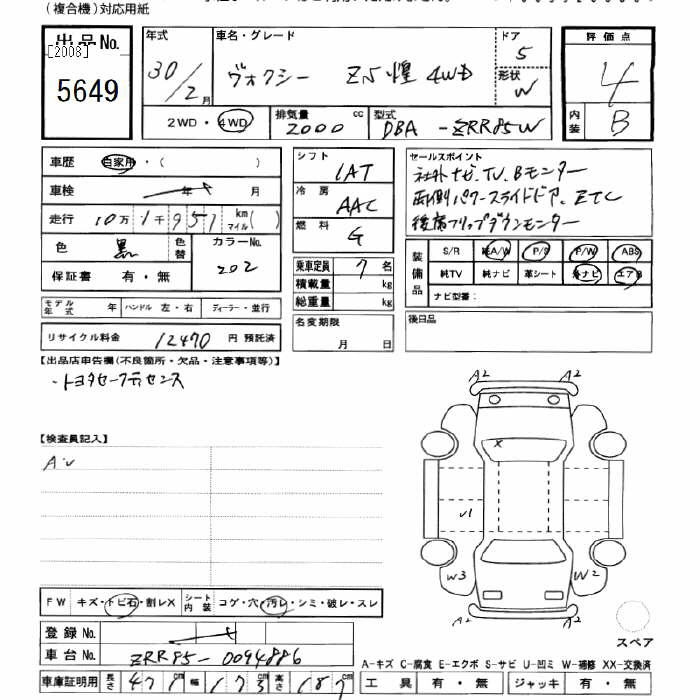 (複合機)対応用紙
出品No.
[2008]
5649
年式
30/2月
車名・グレード
ヴォクシー ZS煌 4WD
ドア
5
形状
W
評価点
4
内装
B
2WD・4WD
排気量
2000 cc
型式
DBA-ZRR85W
車歴 自家用・( )
車検 年 月
走行 10万1千951 km マイル( )
色 黒 色替 カラーNo. 202
保証書 有・無
モデル年式 年 ハンドル 左・右 ディーラー・並行
リサイクル料金 12470 円 預託済
シフト
IAT
冷房
AAC
燃料
G
乗車定員 7 名
積載量 kg
総重量 kg
名変期限
月 日
セールスポイント
社外ナビ、TV、Bモニター
両側パワースライドドア、ETC
後席フリップダウンモニター
装備品
S/R 純A/W P/S P/W ABS
純TV 純ナビ 革シート 外ナビ エアB
ナビ型番:
後日品
【出品店申告欄(不良箇所・欠品・注意事項等)】
・トヨタセーフティセンス
【検査員記入】
A・U
A2 A2
X
U1
W3 W2
A2 A2
スペア
FW キズ・トビ石・割レX シート内装 コゲ・穴・汚レ・シミ・破レ・スレ
登録No.
車台No. ZRR85-0094886
車庫証明用 長さ 471 幅 173 高さ 187
A-キズ C-腐食 E-エクボ S-サビ U-凹ミ W-補修 XX-交換済
工具 有・無 ジャッキ 有・無